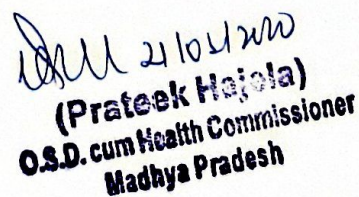 (Prateek Hajela)
O.S.D. cum Health Commissioner
Madhya Pradesh